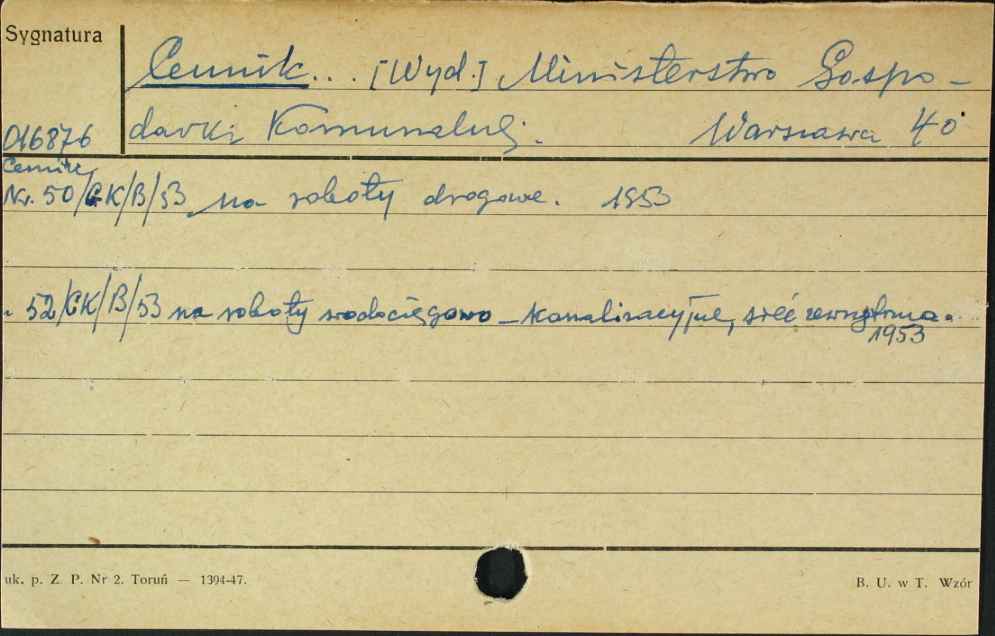 Sygnatura
Cennik... [Wyd.] Ministerstwo Gospo-
016876 darki Komunalnej. Warszawa 4°
Cennik
Nr. 50/CK/B/53 na roboty drogowe. 1953
" 52/CK/B/53 na roboty wodociągowo-kanalizacyjne, sieć zewnętrzna.
1953
uk. p. Z. P. Nr 2. Toruń — 1394-47. B. U. w T. Wzór